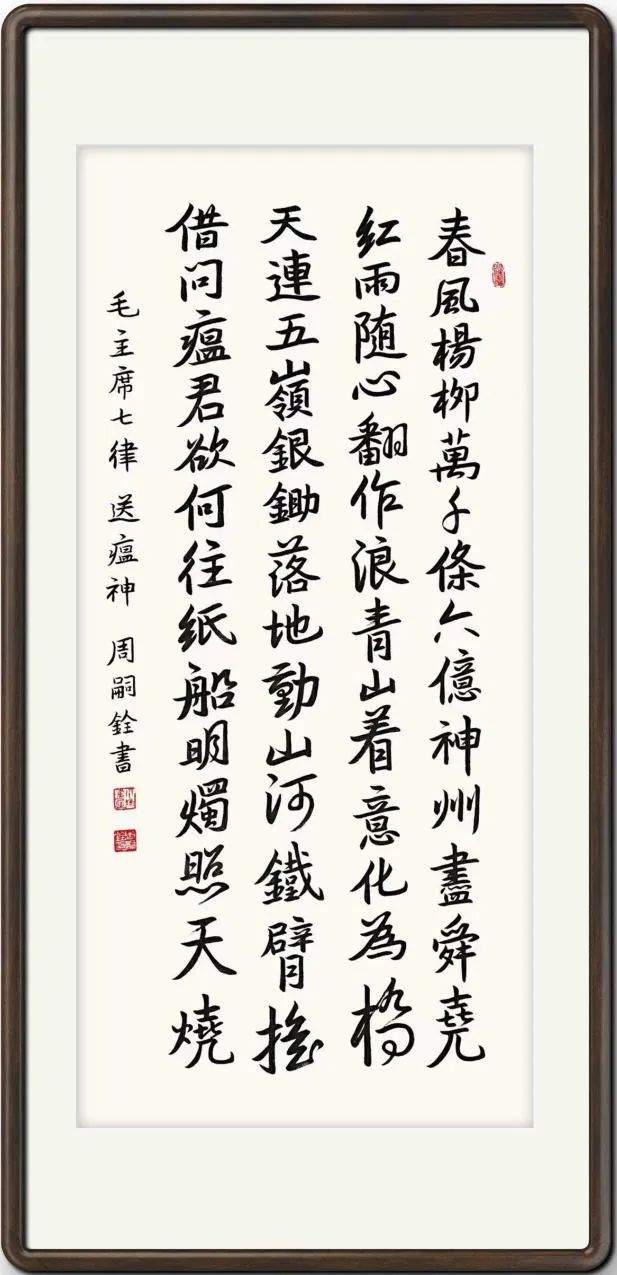 春風楊柳萬千條六億神州盡舜堯
紅雨随心翻作浪青山着意化為橋
天連五嶺銀鋤落地動山河鐵臂搖
借問瘟君欲何往紙船明燭照天燒
毛主席七律 送瘟神 周嗣銓書